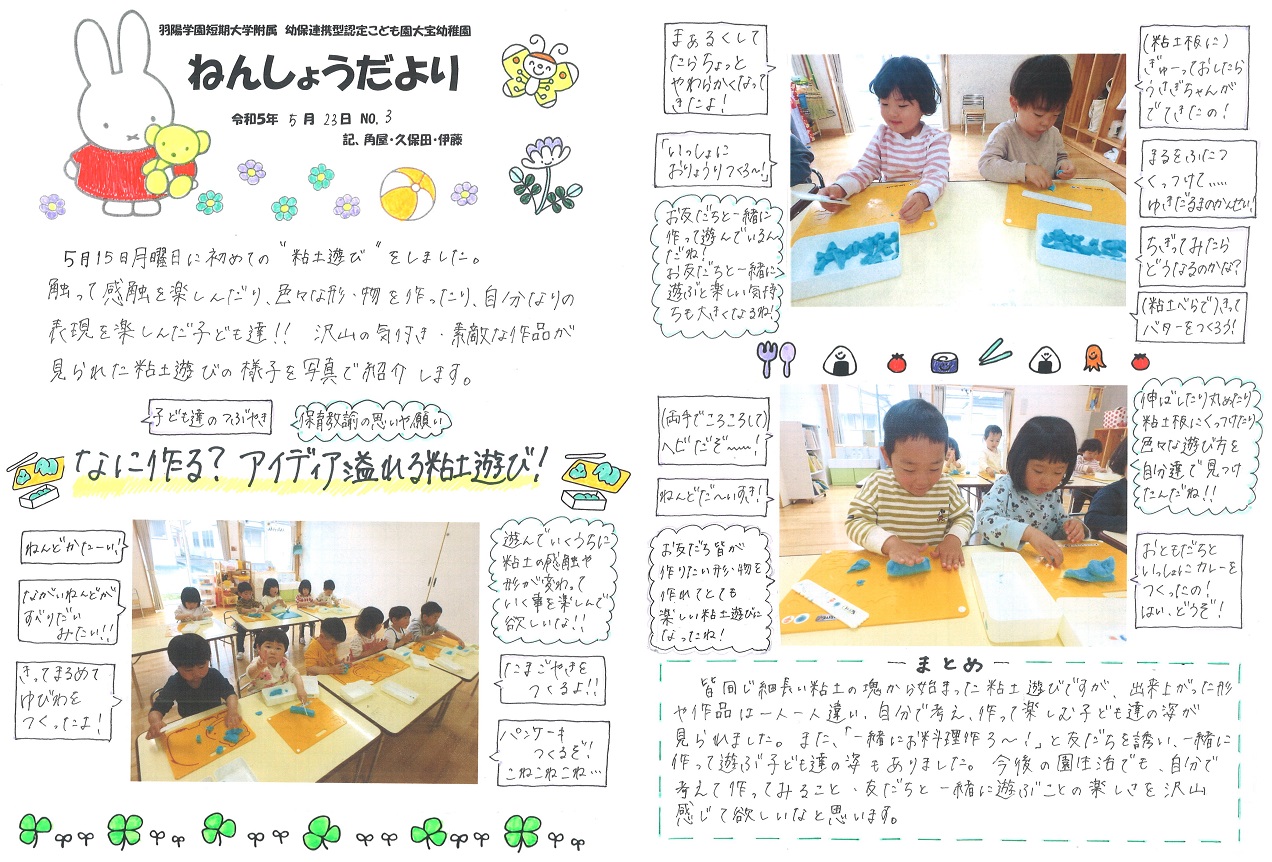 羽陽学園短期大学附属 幼保連携型認定こども園大宝幼稚園
ねんしょうだより
令和5年 5月 23日 NO. 3
記、角屋・久保田・伊藤
5月15日月曜日に初めての“粘土遊び”をしました。
触って感触を楽しんだり、色々な形・物を作ったり、自分なりの
表現を楽しんだ子ども達!! 沢山の気付き・素敵な作品が
見られた粘土遊びの様子を写真で紹介します。
子ども達のつぶやき
保育教諭の思いや願い
なに作る? アイディア溢れる粘土遊び!
ねんどかたーい!
ながいねんどが
すべりだい
みたい!!
きってまるめて
ゆびわを
つくったよ!
遊んでいくうちに
粘土の感触や
形が変わって
いく事を楽しんで
欲しいな!!
たまごやきを
つくるよ!!
パンケーキ
つくるぞ!
こねこねこね…
まぁるくして
たらちょっと
やわらかくなって
きたよ!
「いっしょに
おりょうりつくろ〜!」
お友だちと一緒に
作って遊んでいるん
だね!
お友だちと一緒に
遊ぶと楽しい気持
ちも大きくなるね!
(粘土板に)
ぎゅーっておしたら
うさぎちゃんが
でてきたの!
まるをふたつ
くっつけて……
ゆきだるまのかんせい!
ちぎってみたら
どうなるのかな?
(粘土べらで)きって
バターをつくろう!
(両手でころころして)
ヘビだぞ〜〜!
ねんどだ〜いすき!
お友だち皆が
作りたい形・物を
作れてとても
楽しい粘土遊びに
なったね!
伸ばしたり丸めたり
粘土板にくっつけたり
色々な遊び方を
自分達で見つけ
たんだね!!
おともだちと
いっしょにカレーを
つくったの!
はい、どうぞ!
まとめ
皆同じ細長い粘土の塊から始まった粘土遊びですが、出来上がった形
や作品は一人一人違い、自分で考え、作って楽しむ子ども達の姿が
見られました。また、「一緒にお料理作ろ〜!」と友だちを誘い、一緒に
作って遊ぶ子ども達の姿もありました。今後の園生活でも、自分で
考えて作ってみること・友だちと一緒に遊ぶことの楽しさを沢山
感じて欲しいなと思います。